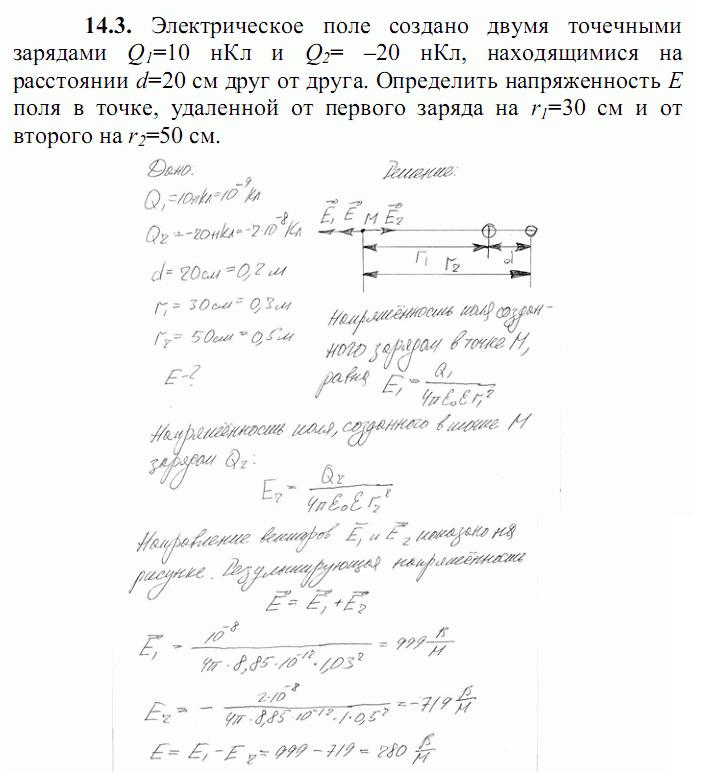 14.3. Электрическое поле создано двумя точечными
зарядами Q₁=10 нКл и Q₂= –20 нКл, находящимися на
расстоянии d=20 см друг от друга. Определить напряженность E
поля в точке, удаленной от первого заряда на r₁=30 см и от
второго на r₂=50 см.
Дано:
Решение:
Q₁=10нКл=10⁻⁹Кл
Q₂=-20нКл=-2·10⁻⁸Кл
d=20см=0,2м
r₁=30см=0,3м
r₂=50см=0,5м
E-?
E₁ E M E₂
r₁ d
r₂
Напряжённость поля создан-
ного зарядом в точке М,
равна E₁ = Q₁ / 4πε₀εr₁²
Напряжённость поля, созданного в точке М
зарядом Q₂:
E₂ = Q₂ / 4πε₀εr₂²
Направление векторов E₁ и E₂ показано на
рисунке. Результирующая напряжённость
E = E₁ + E₂
E₁ = 10⁻⁸ / 4π·8,85·10⁻¹²·1,03² = 999 В/м
E₂ = - 2·10⁻⁸ / 4π·8,85·10⁻¹²·1·0,5² = -719 В/м
E = E₁ - E₂ = 999 - 719 = 280 В/м